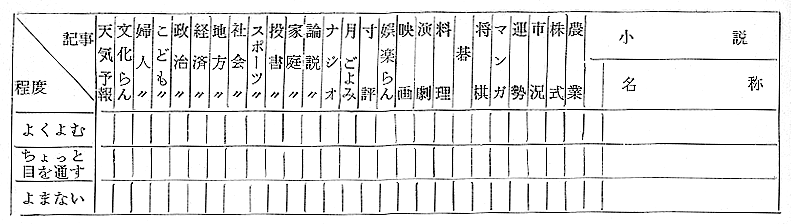 記事
程度
天気予報
文化らん
婦人〃
こども〃
政治〃
経済〃
地方〃
社会〃
スポーツ〃
投書〃
家庭〃
論説〃
ナジオ
月ごよみ
寸評
娯楽らん
映画
演劇
料理
碁
将棋
マンガ
運勢
市況
株式
農業
小説
名称
よくよむ
ちょっと
目を通す
よまない